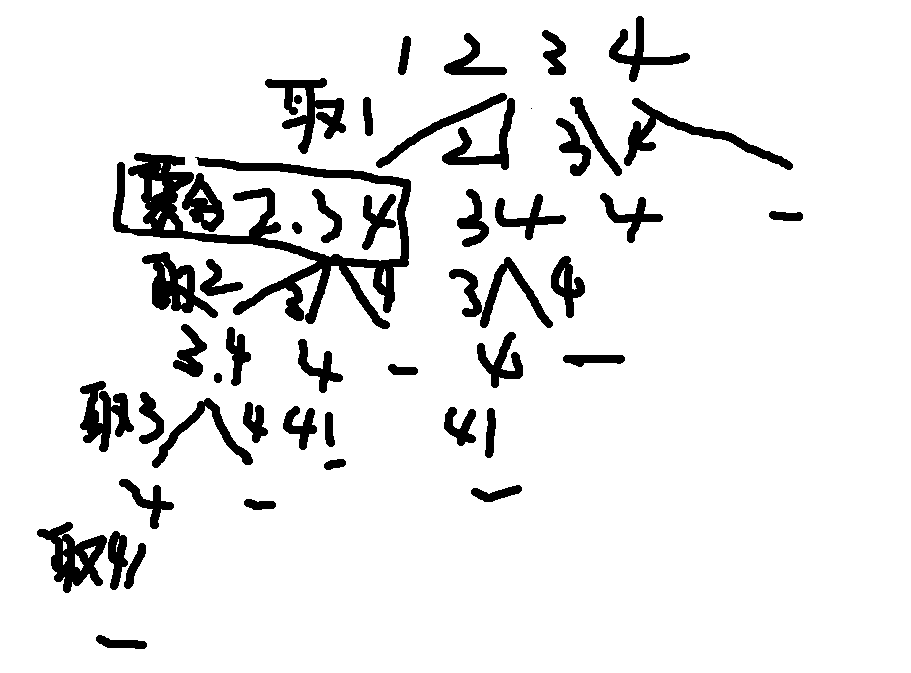 1 2 3 4
取1 2 3 4
集合 2.3 4 3 4 4 -
取2 3 4 3 4
3.4 4 - 4 -
取3 4 4 4
4 - - -
取4
-